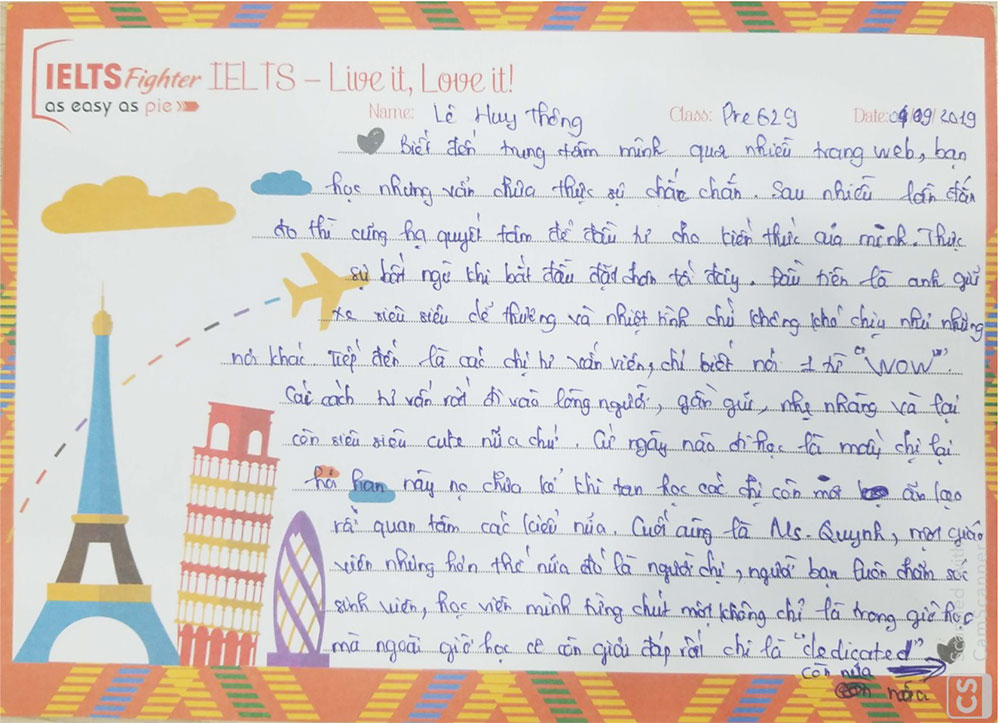 IELTS Fighter IELTS – Live it, Love it!
as easy as pie
Name: Lê Huy Thông Class: Pre629 Date: 04/09/2019
Biết đến trung tâm mình qua nhiều trang web, bạn
học nhưng vẫn chưa thực sự chắc chắn. Sau nhiều lần đắn
đo thì cũng hạ quyết tâm để đầu tư cho kiến thức của mình. Thực
sự bất ngờ khi bắt đầu đặt chân tới đây. Đầu tiên là anh giữ
xe siêu siêu dễ thương và nhiệt tình chứ không khó chịu như những
nơi khác. Tiếp đến là các chị tư vấn viên, chỉ biết nói 1 từ "WOW".
Các cách tư vấn rất đi vào lòng người, gần gũi, nhẹ nhàng và lại
còn siêu siêu cute nữa chứ. Cứ ngày nào đi học là mấy chị lại
hỏi han này nọ chưa kể khi tan học các chị còn mời ăn
rất quan tâm các kiểu nữa. Cuối cùng là Ms. Quynh, một giáo
viên nhưng hơn thế nữa đó là người chị, người bạn luôn chăm sóc
sinh viên, học viên mình từng chút một không chỉ là trong giờ học
mà ngoài giờ học c còn giải đáp rất chi là "dedicated"
còn nữa
Scanned with
CamScanner
CS